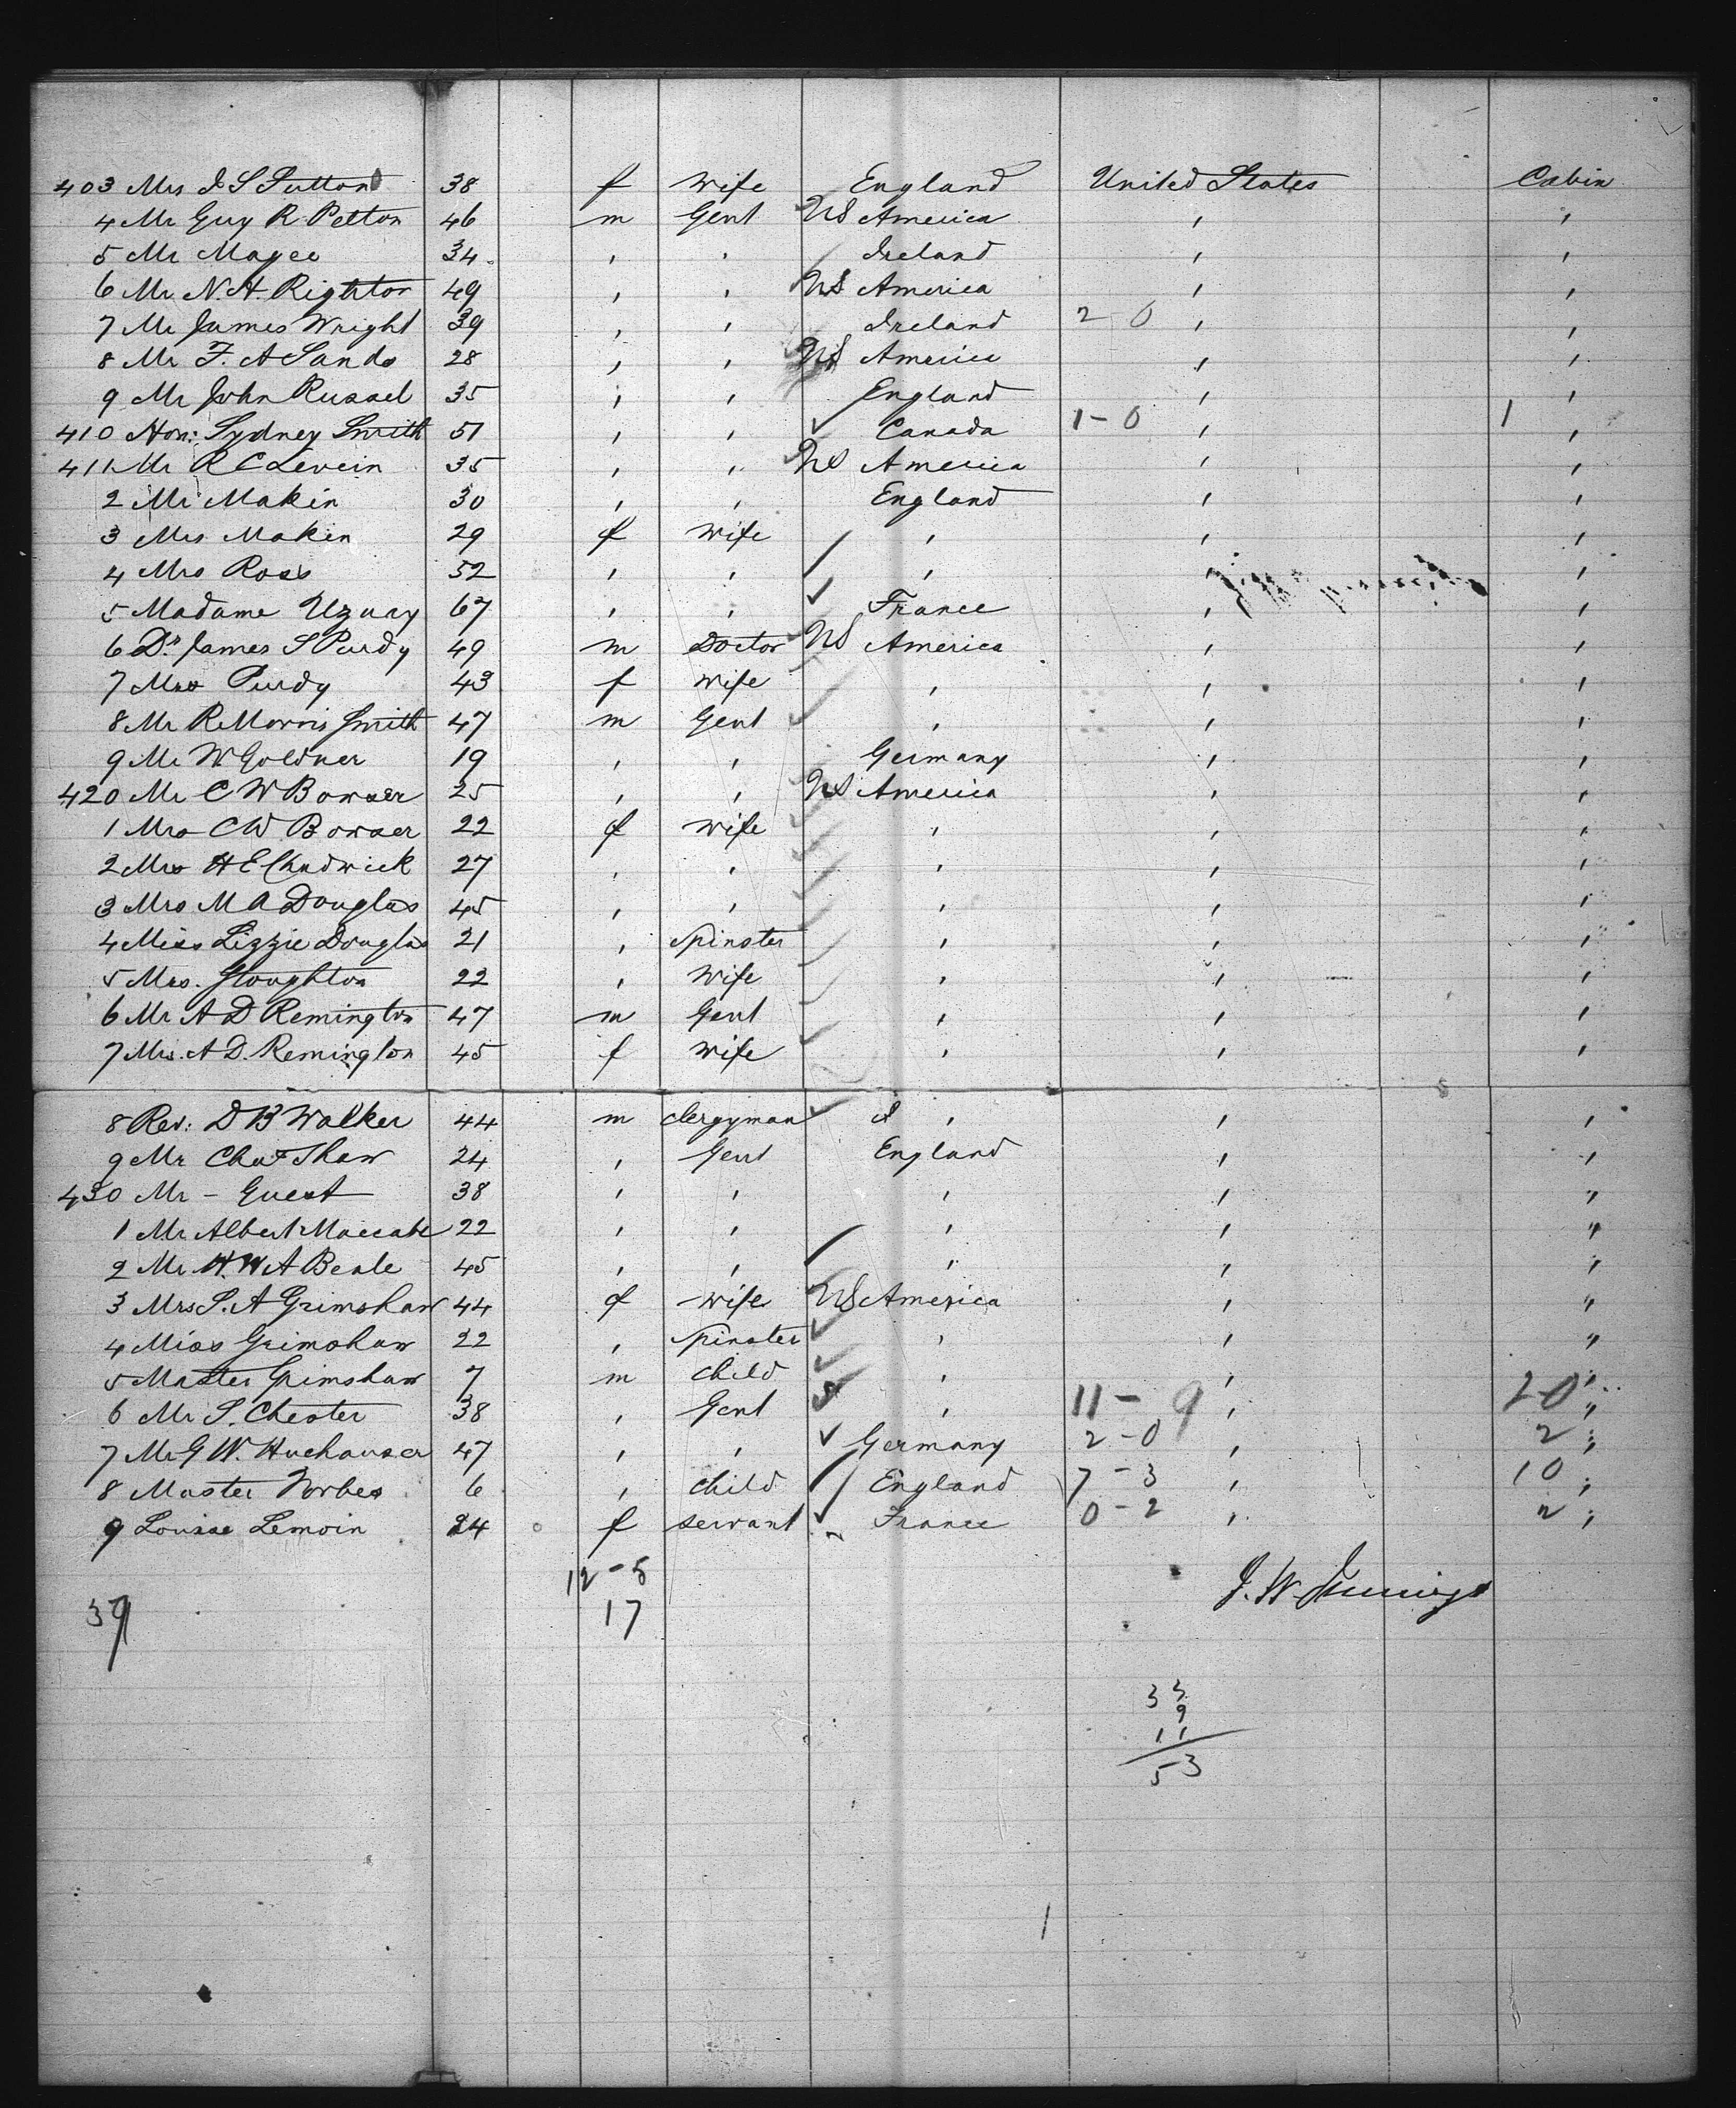 403 Mrs J S Sutton 38 f Wife England United States Cabin
4 Mr Guy R Pelton 46 m Gent US America " "
5 Mr Magee 34 " " Ireland " "
6 Mr N. H. Righton 49 " " US America " "
7 Mr James Wright 39 " " Ireland 2 0 " "
8 Mr F. A Sands 28 " " US America " "
9 Mr John Russel 35 " " England " "
410 Hon: Sydney Smith 51 " " Canada 1-0 " 1 "
411 Mr R C 35 " " US America " "
2 Mr Makin 30 " " England " "
3 Mrs Makin 29 f Wife " " "
4 Mrs Ross 52 " " " " "
5 Madame Uzuary 67 " " France " "
6 Dr James S Purdy 49 m Doctor US America " "
7 Mrs Purdy 43 f Wife " " "
8 Mr R Morris Smith 47 m Gent " " "
9 Mr W Goldner 19 " " Germany " "
420 Mr C W Bowser 25 " " US America " "
1 Mrs C W Bowser 22 f Wife " " "
2 Mrs H E Chadwick 27 " " " " "
3 Mrs M A Douglas 45 " " " " "
4 Miss Lizzie Douglas 21 " Spinster " " "
5 Mrs. Stoughton 22 " Wife " " "
6 Mr A D Remington 47 m Gent " " "
7 Mrs. A D. Remington 45 f Wife " " "
8 Rev: D B Walker 44 m Clergyman " " "
9 Mr Chas Shaw 24 " Gent England " "
430 Mr - Guest 38 " " " " "
1 Mr Albert Maccabe 22 " " " " "
2 Mr H. W A Beale 45 " " " " "
3 Mrs S. A Grimshaw 44 f Wife US America " "
4 Miss Grimshaw 22 " Spinster " " "
5 Master Grimshaw 7 m Child " " "
6 Mr S. Chester 38 " Gent " 11-9 " 20 "
7 Mr G W. Huehauser 47 " " Germany 2-0 " 2 "
8 Master Forbes 6 " Child England 7-3 " 10 "
9 Louise Lemoin 24 f Servant France 0-2 " 2 "
12-5
39 17
J. W. Jennings
33
9
11
53